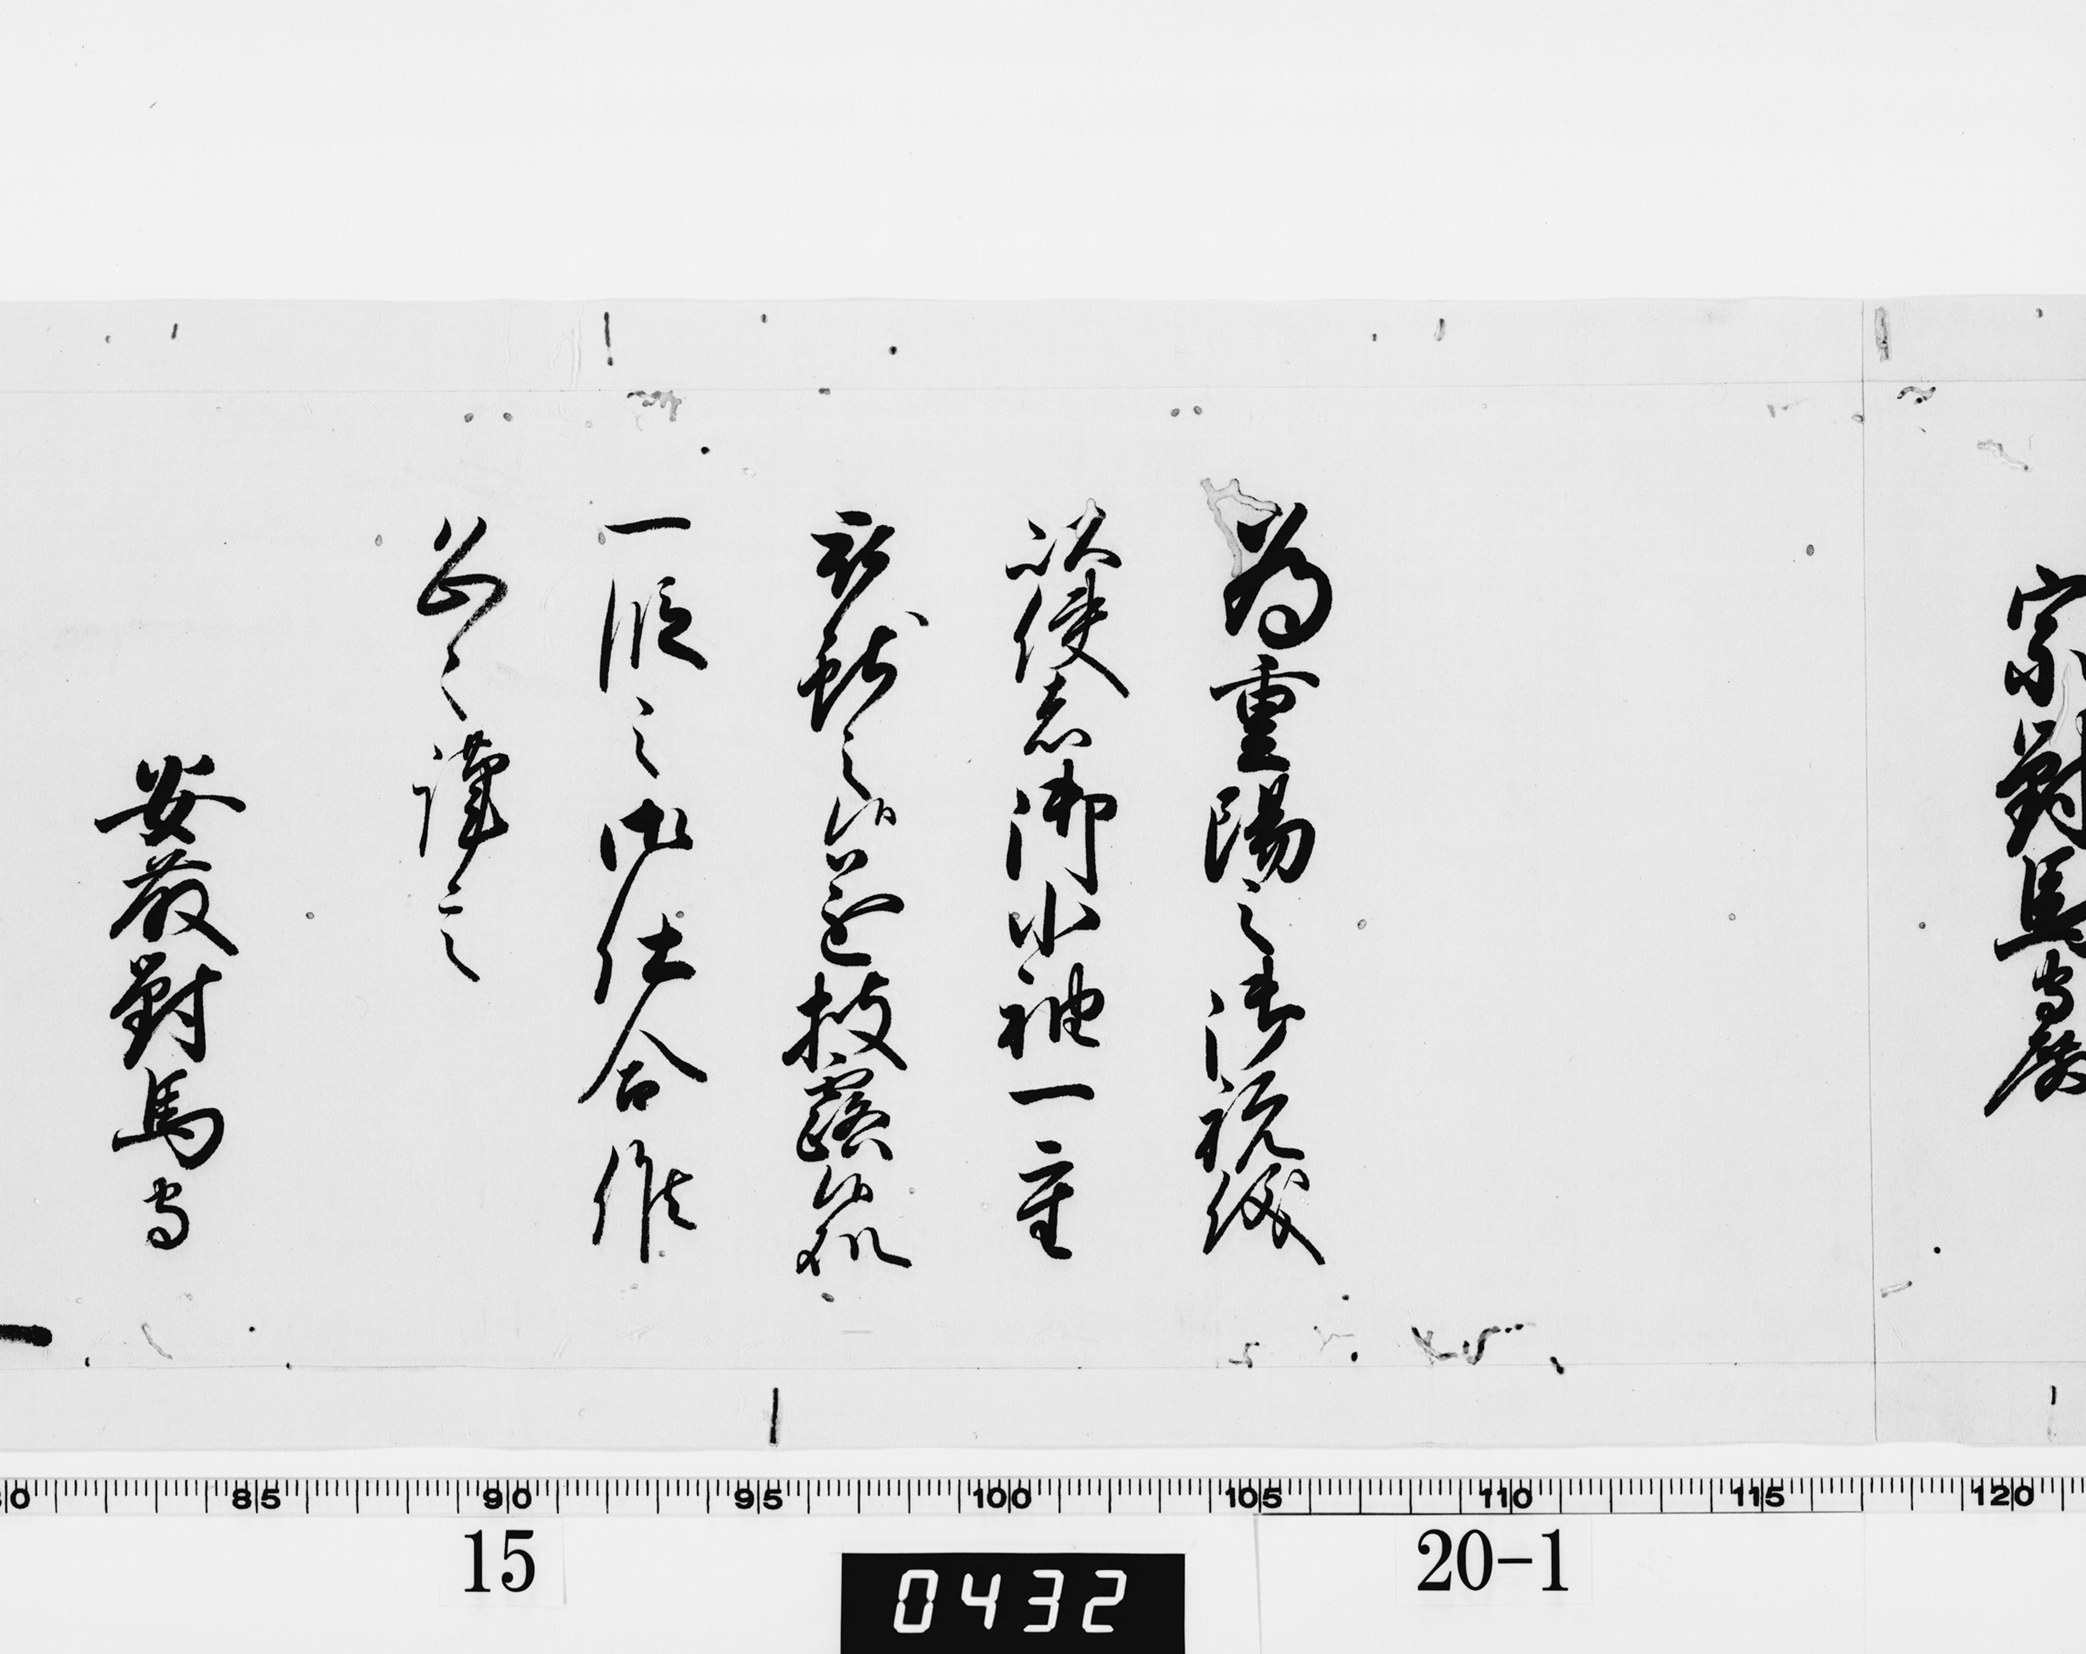 宗對馬守殿
為重陽之御祝儀
以使者御小袖一重
被獻之候遂披露候処
一段之御仕合候
恐々謹言
安藤對馬守
85 90 95 100 105 110 115 120
15 20-1
0432